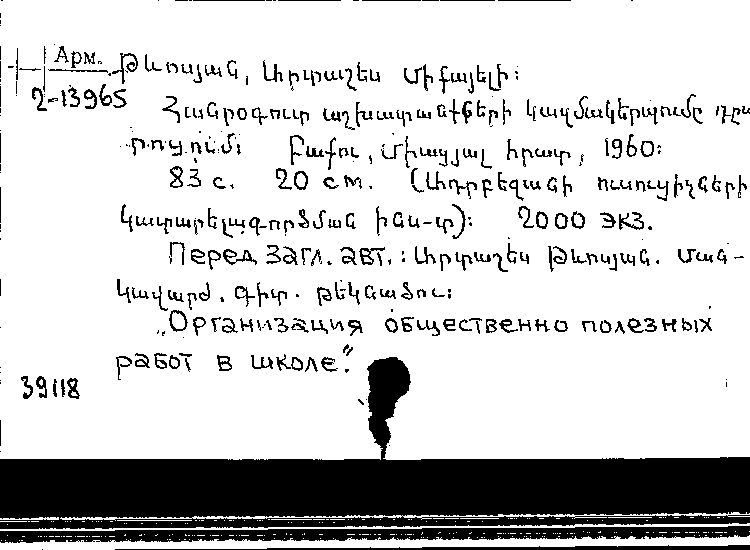 Арм. Թևոսյան, Արտաշես Միքայելի:
2-13965 Հանրօգուտ աշխատանքների կազմակերպումը դպ
րոցում: Բաքու, Միացյալ հրատ, 1960:
83 с. 20 см. (Ադրբեզանի ուսուցիչների
կատարելագործման ինս-տ): 2000 экз.
Перед загл. авт.: Արտաշես Թևոսյան. ման-
կավարժ. գիտ. թեկնածու:
„Организация общественно полезных
работ в школе".
39118